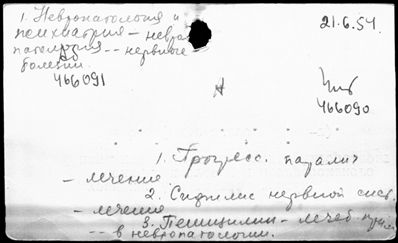 1. Невропатология и
21.6.54.
психиатрия - невро
патология -- нервные
болезни.
466091
466090
1. Прогресс. паралич
- лечение
2. Сифилис нервной сист.
- лечение
3. Пенициллин - лечеб. прим.
- в невропатологии.